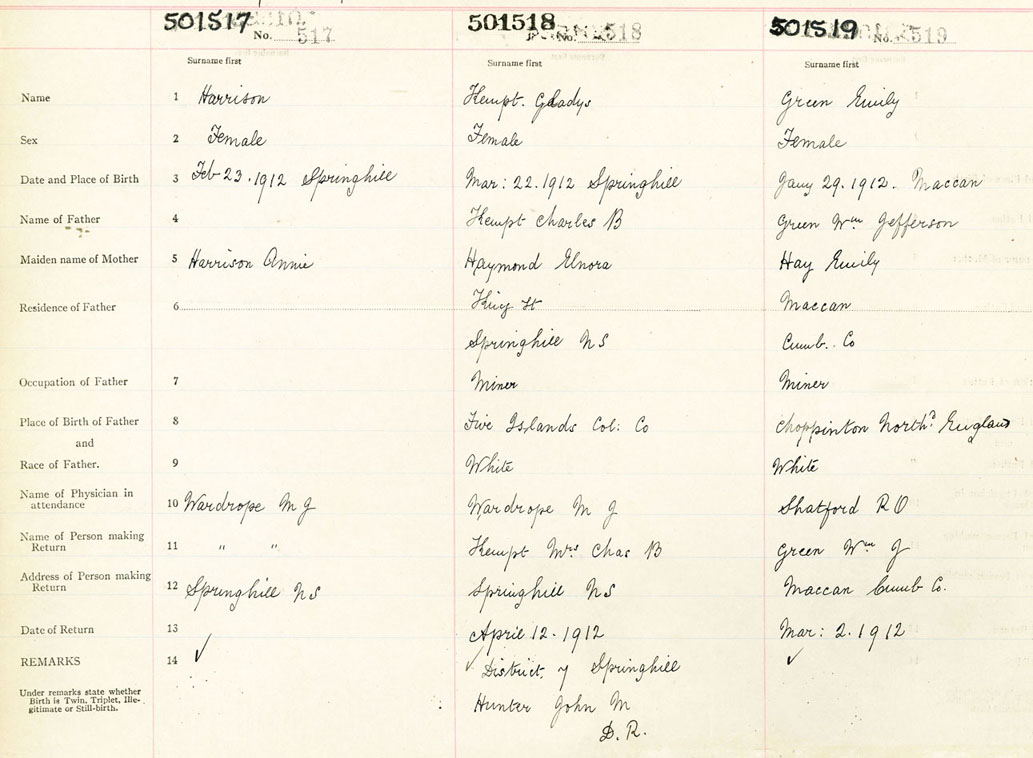 501517 501518 501519
No. 517 No. 518 No. 519
Surname first Surname first Surname first
Name 1 Harrison Kempt. Gladys Green Emily
Sex 2 Female Female Female
Date and Place of Birth 3 Feb 23. 1912 Springhill Mar: 22. 1912 Springhill Jany 29. 1912. Maccan
Name of Father 4 Kempt Charles B Green Wm Jefferson
Maiden name of Mother 5 Harrison Annie Haymond Elnora Hay Emily
Residence of Father 6 King St Maccan
Springhill NS Cumb. Co
Occupation of Father 7 Miner Miner
Place of Birth of Father 8 Five Islands Col: Co Choppinton Northd England
and
Race of Father. 9 White White
Name of Physician in
attendance 10 Wardrope M J Wardrope M J Shatford R O
Name of Person making
Return 11 " " Kempt Mrs Chas B Green Wm J
Address of Person making
Return 12 Springhill NS Springhill NS Maccan Cumb Co.
Date of Return 13 April 12. 1912 Mar: 2. 1912
REMARKS 14 ✓ ✓ District. of Springhill ✓
Under remarks state whether
Birth is Twin, Triplet, Ille-
gitimate or Still-birth.
Hunter John M
D. R.